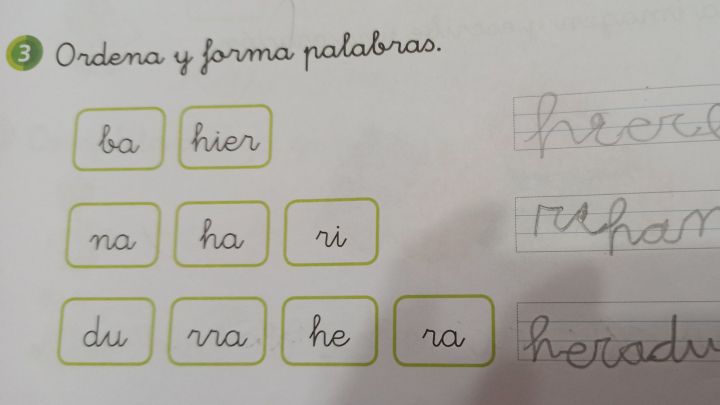 3 Ordena y forma palabras.
ba hier
na ha ri
du rra he ra heradu